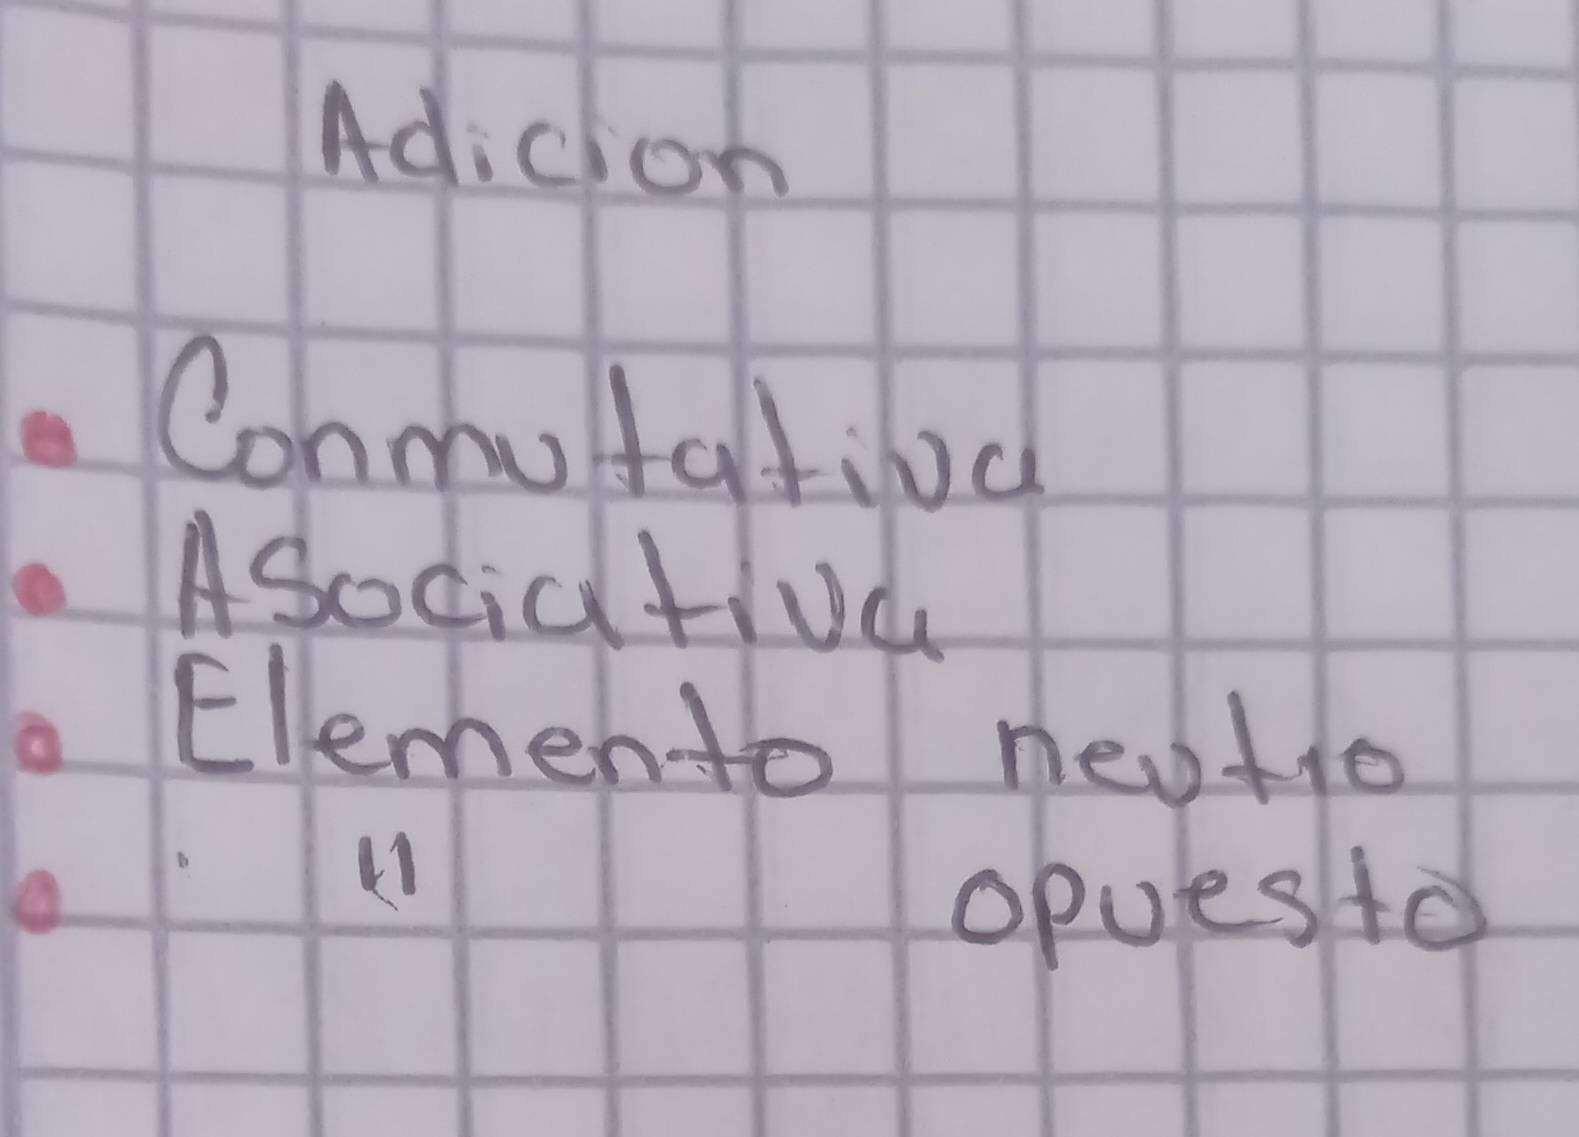 Adicion
• Conmutativa
• Asociativa
• Elemento neutro
• " opuesto